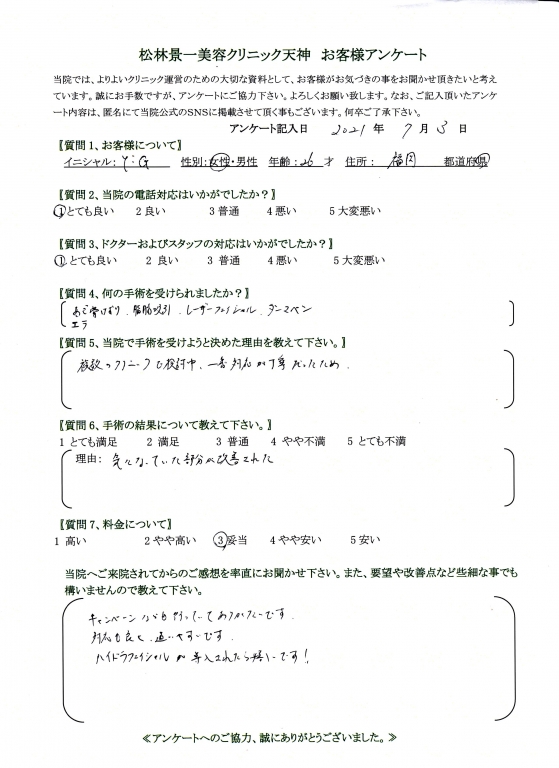 松林景一美容クリニック天神 お客様アンケート
当院では、よりよいクリニック運営のための大切な資料として、お客様がお気づきの事をお聞かせ頂きたいと考え
ています。誠にお手数ですが、アンケートにご協力下さい。よろしくお願い致します。なお、ご記入頂いたアンケ
ート内容は、匿名にて当院公式のSNSに掲載させて頂く事もございます。何卒ご了承下さい。
アンケート記入日 2021 年 7 月 3 日
〖質問 1、お客様について〗
イニシャル: Y:G 性別:女性・男性 年齢:26 才 住所: 福岡 都道府県
〖質問 2、当院の電話対応はいかがでしたか?〗
1 とても良い 2 良い 3 普通 4 悪い 5 大変悪い
〖質問 3、ドクターおよびスタッフの対応はいかがでしたか?〗
1 とても良い 2 良い 3 普通 4 悪い 5 大変悪い
〖質問 4、何の手術を受けられましたか?〗
あご骨けずり、脂肪吸引、レーザーフェイシャル、ダーマペン
エラ
〖質問 5、当院で手術を受けようと決めた理由を教えて下さい。〗
複数のクリニックで検討中、一番対応が丁寧だったため
〖質問 6、手術の結果について教えて下さい。〗
1 とても満足 2 満足 3 普通 4 やや不満 5 とても不満
理由: 気になっていた部分が改善された
〖質問 7、料金について〗
1 高い 2 やや高い 3 妥当 4 やや安い 5 安い
当院へご来院されてからのご感想を率直にお聞かせ下さい。また、要望や改善点など些細な事でも
構いませんので教えて下さい。
キャンペーンなども行っていてありがたいです。
対応も良く、通いやすいです。
ハイドラフェイシャルが導入されたら嬉しいです!
≪アンケートへのご協力、誠にありがとうございました。≫